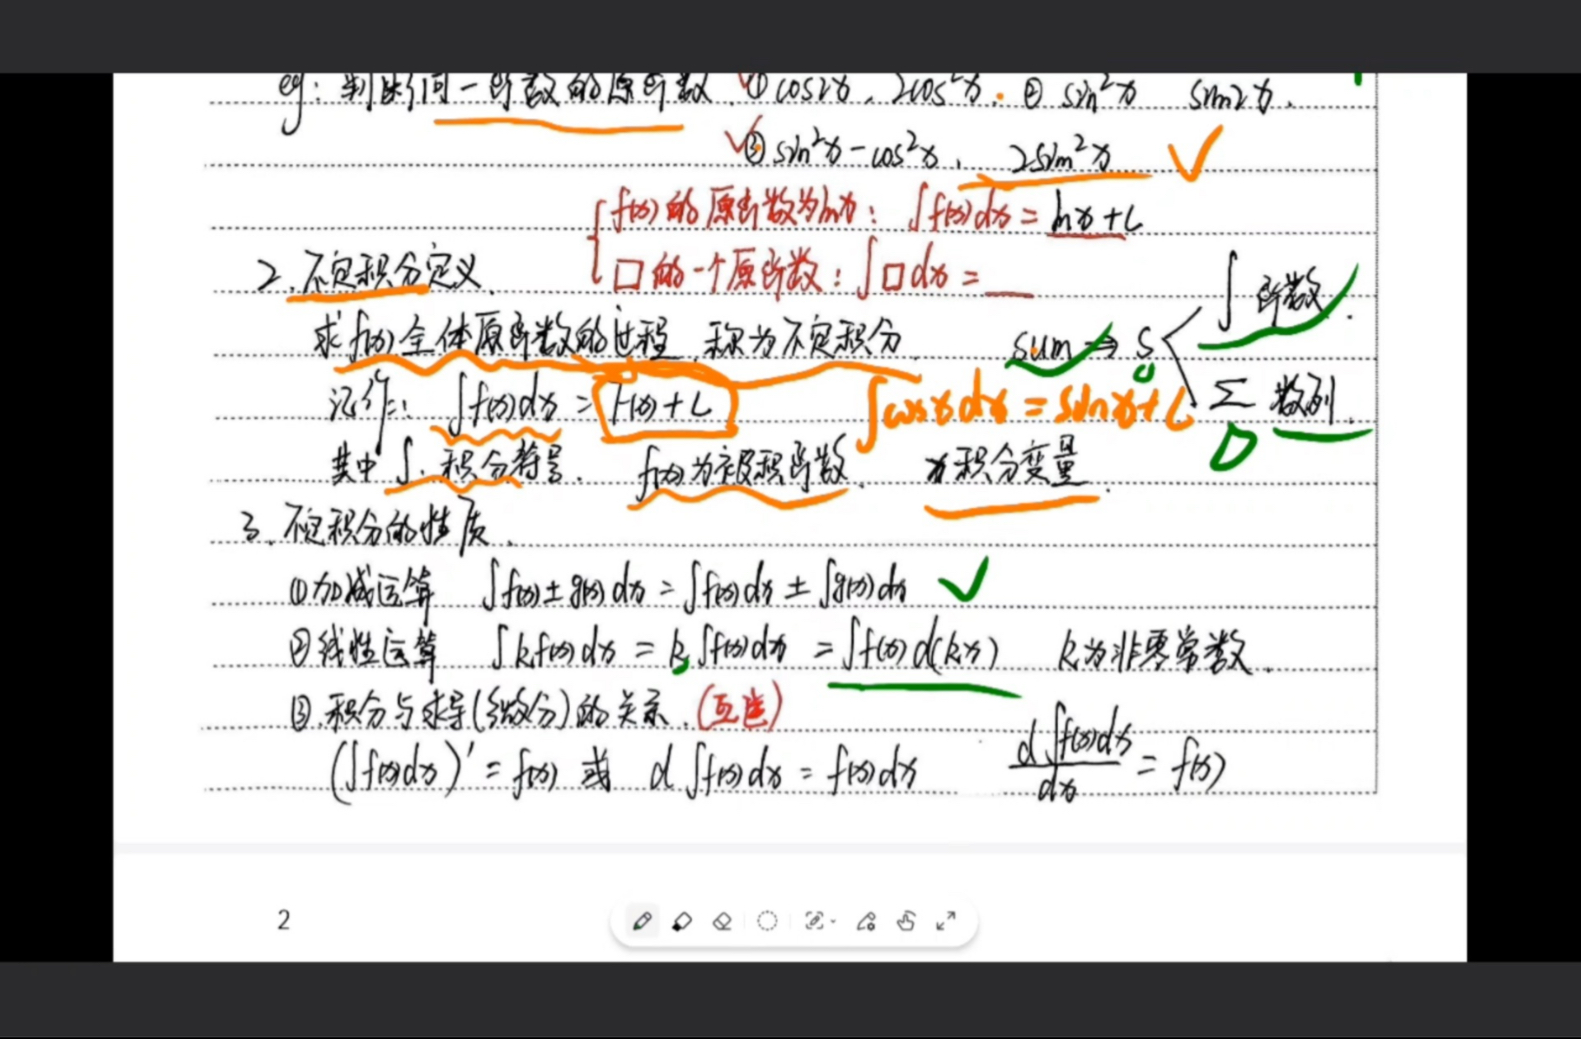 eg: 判断同一函数的原函数 ① cos2x, 2cos²x. ② sin²x sin2x.
③ sin²x - cos²x, 2sin²x
f(x)的原函数为lnx: ∫f(x)dx = lnx + C
2. 不定积分定义. □的一个原函数: ∫□dx = __
∫ 函数.
求f(x)全体原函数的过程, 称为不定积分. sum → S
记作: ∫f(x)dx = F(x) + C ∫cosxdx = sinx + C Σ 数列.
其中 ∫: 积分符号. f(x)为被积函数. x积分变量.
3. 不定积分的性质.
①加减运算 ∫f(x) ± g(x) dx = ∫f(x)dx ± ∫g(x)dx
②线性运算 ∫kf(x)dx = k∫f(x)dx = ∫f(x)d(kx) k为非零常数.
③.积分与求导(微分)的关系. (互逆)
(∫f(x)dx)' = f(x) 或 d∫f(x)dx = f(x)dx d∫f(x)dx/dx = f(x)
2